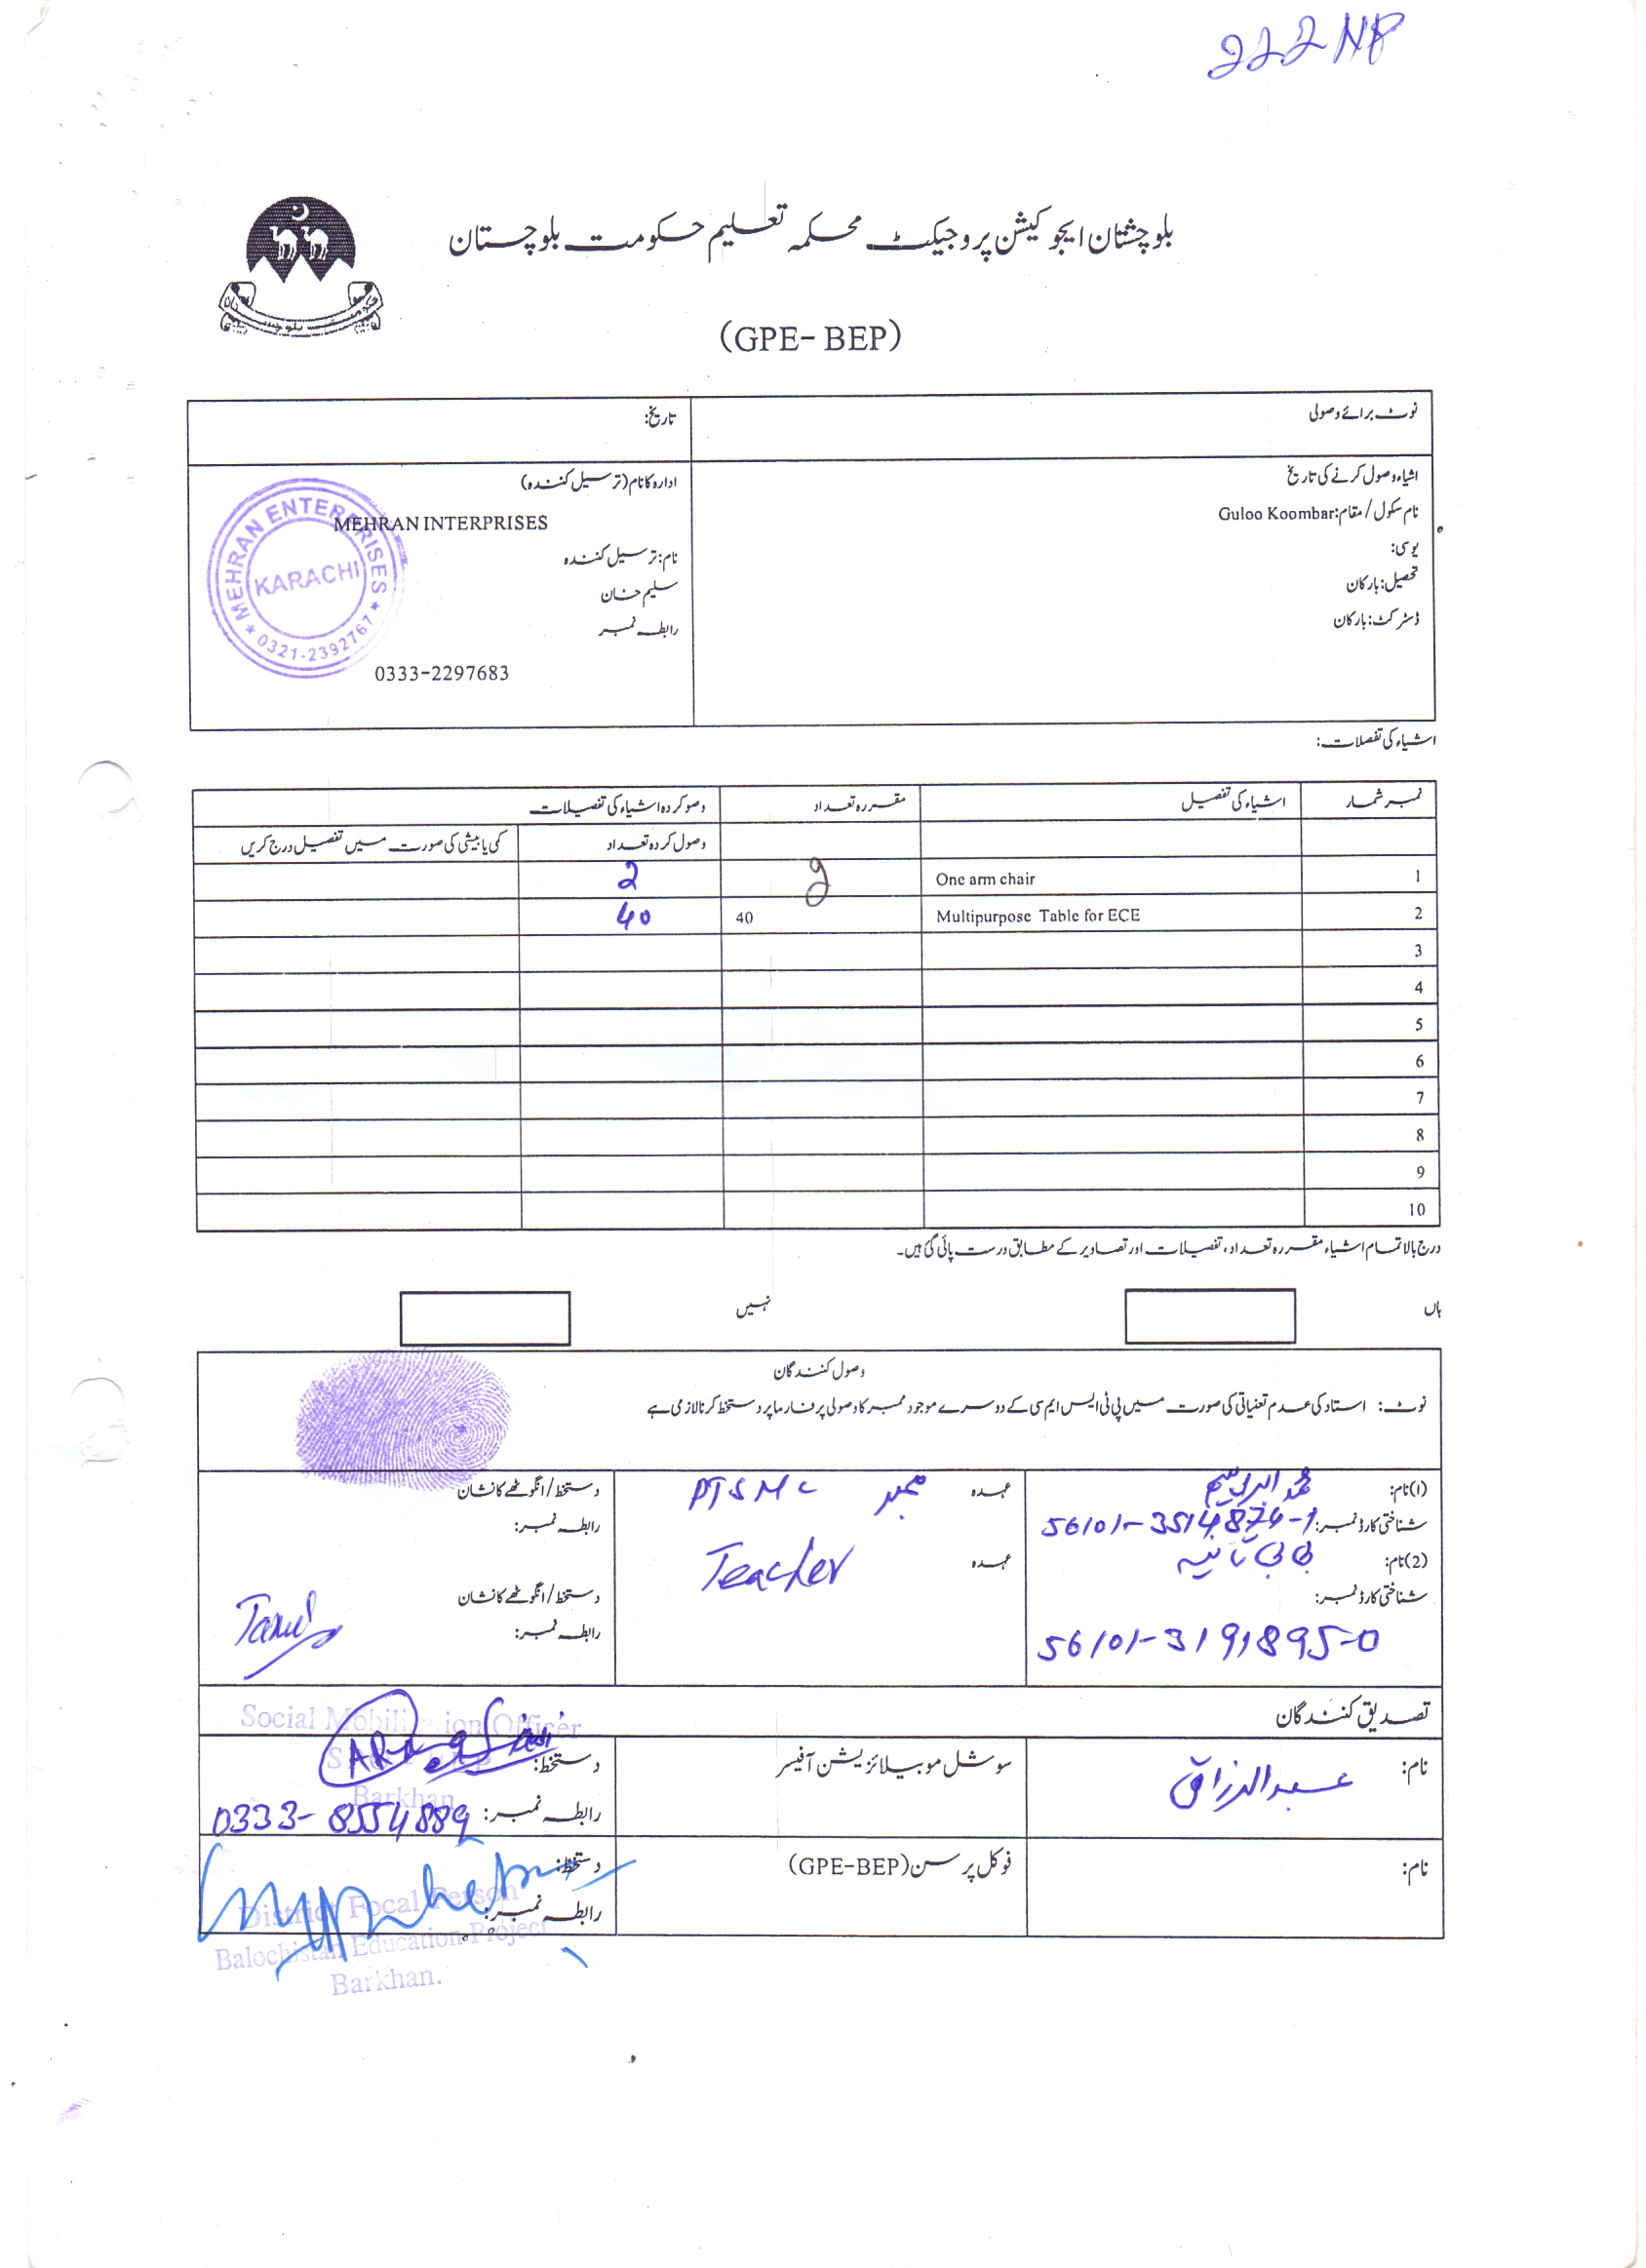 222 NP
بلوچشتان ایجوکیشن پروجیکٹ محکمہ تعلیم حکومت بلوچستان
(GPE- BEP)
نوٹ برائے وصولی
تاریخ:
اشیاء وصول کرنے کی تاریخ
نام سکول / مقام: Guloo Koombar
یوسی:
تحصیل: بارکان
ڈسٹرکٹ: بارکان
ادارہ کا نام (ترسیل کنندہ)
MEHRAN INTERPRISES
نام: ترسیل کنندہ
سلیم خان
رابطہ نمبر
0333-2297683
MEHRAN ENTERPRISES
KARACHI
0321-2392767
اشیاء کی تفصلات:
نمبر شمار اشیاء کی تفصیل مقررہ تعداد وصو کردہ اشیاء کی تفصیلات
وصول کردہ تعداد کمی یا بیشی کی صورت میں تفصیل درج کریں
1 One arm chair 2 2
2 Multipurpose Table for ECE 40 40
3
4
5
6
7
8
9
10
درج بالا تمام اشیاء مقررہ تعداد، تفصیلات اور تصاویر کے مطابق درست پائی گئ ہیں۔
ہاں نہیں
وصول کنندگان
نوٹ: استاد کی عدم تعنیاتی کی صورت میں پی ٹی ایس ایم سی کے دوسرے موجود ممبر کا وصولی پر فارما پر دستخط کرنا لازمی ہے
(1) نام: محمد ابراہیم عہدہ ممبر PTSMC دستخط / انگوٹھے کا نشان
شناختی کارڈ نمبر: 56101-3514874-1 رابطہ نمبر:
(2) نام: بی بی تانیہ عہدہ Teacher دستخط / انگوٹھے کا نشان
شناختی کارڈ نمبر: رابطہ نمبر:
56101-3191895-0
تصدیق کنندگان
Social Mobilization Officer
Barkhan
نام: عبدالرزاق سوشل موبیلائزیشن آفیسر دستخط:
رابطہ نمبر: 0333-8554889
نام: فوکل پرسن (GPE-BEP) دستخط:
رابطہ نمبر:
District Focal Person
Balochistan Education Project
Barkhan.